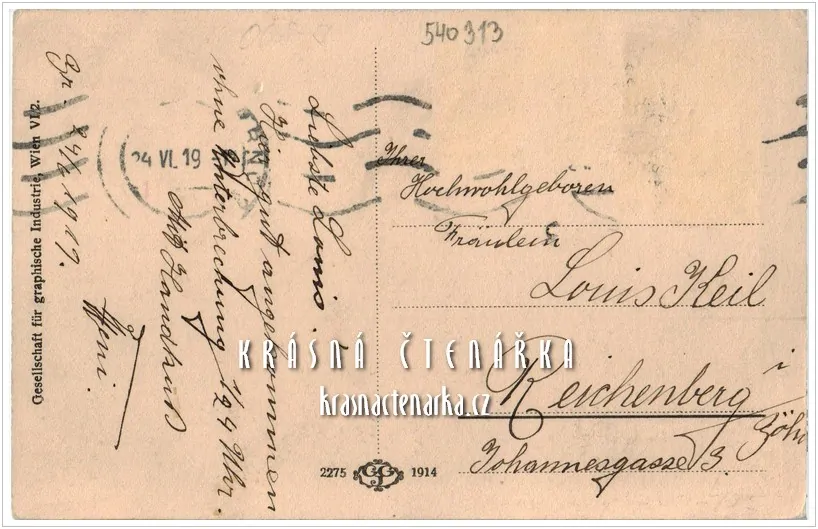 540313
Gesellschaft für graphische Industrie, Wien VI/2.
24/6 1919.
Liebste Louis.
Hier gut angekommen
ohne Unterbrechung 1/2 4 Uhr.
Mit Handkuß
24 VI. 19
Ihrer
Hochwohlgeboren
Fräulein
Louis Keil
Reichenberg
i
Johannesgasse 3.
KRÁSNÁ ČTENÁŘKA
krasnactenarka.cz
2275 1914